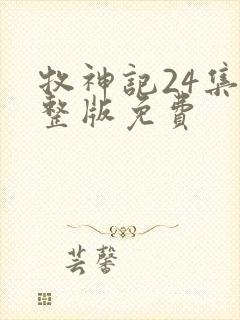 牧神記24集
整版免費
芸馨